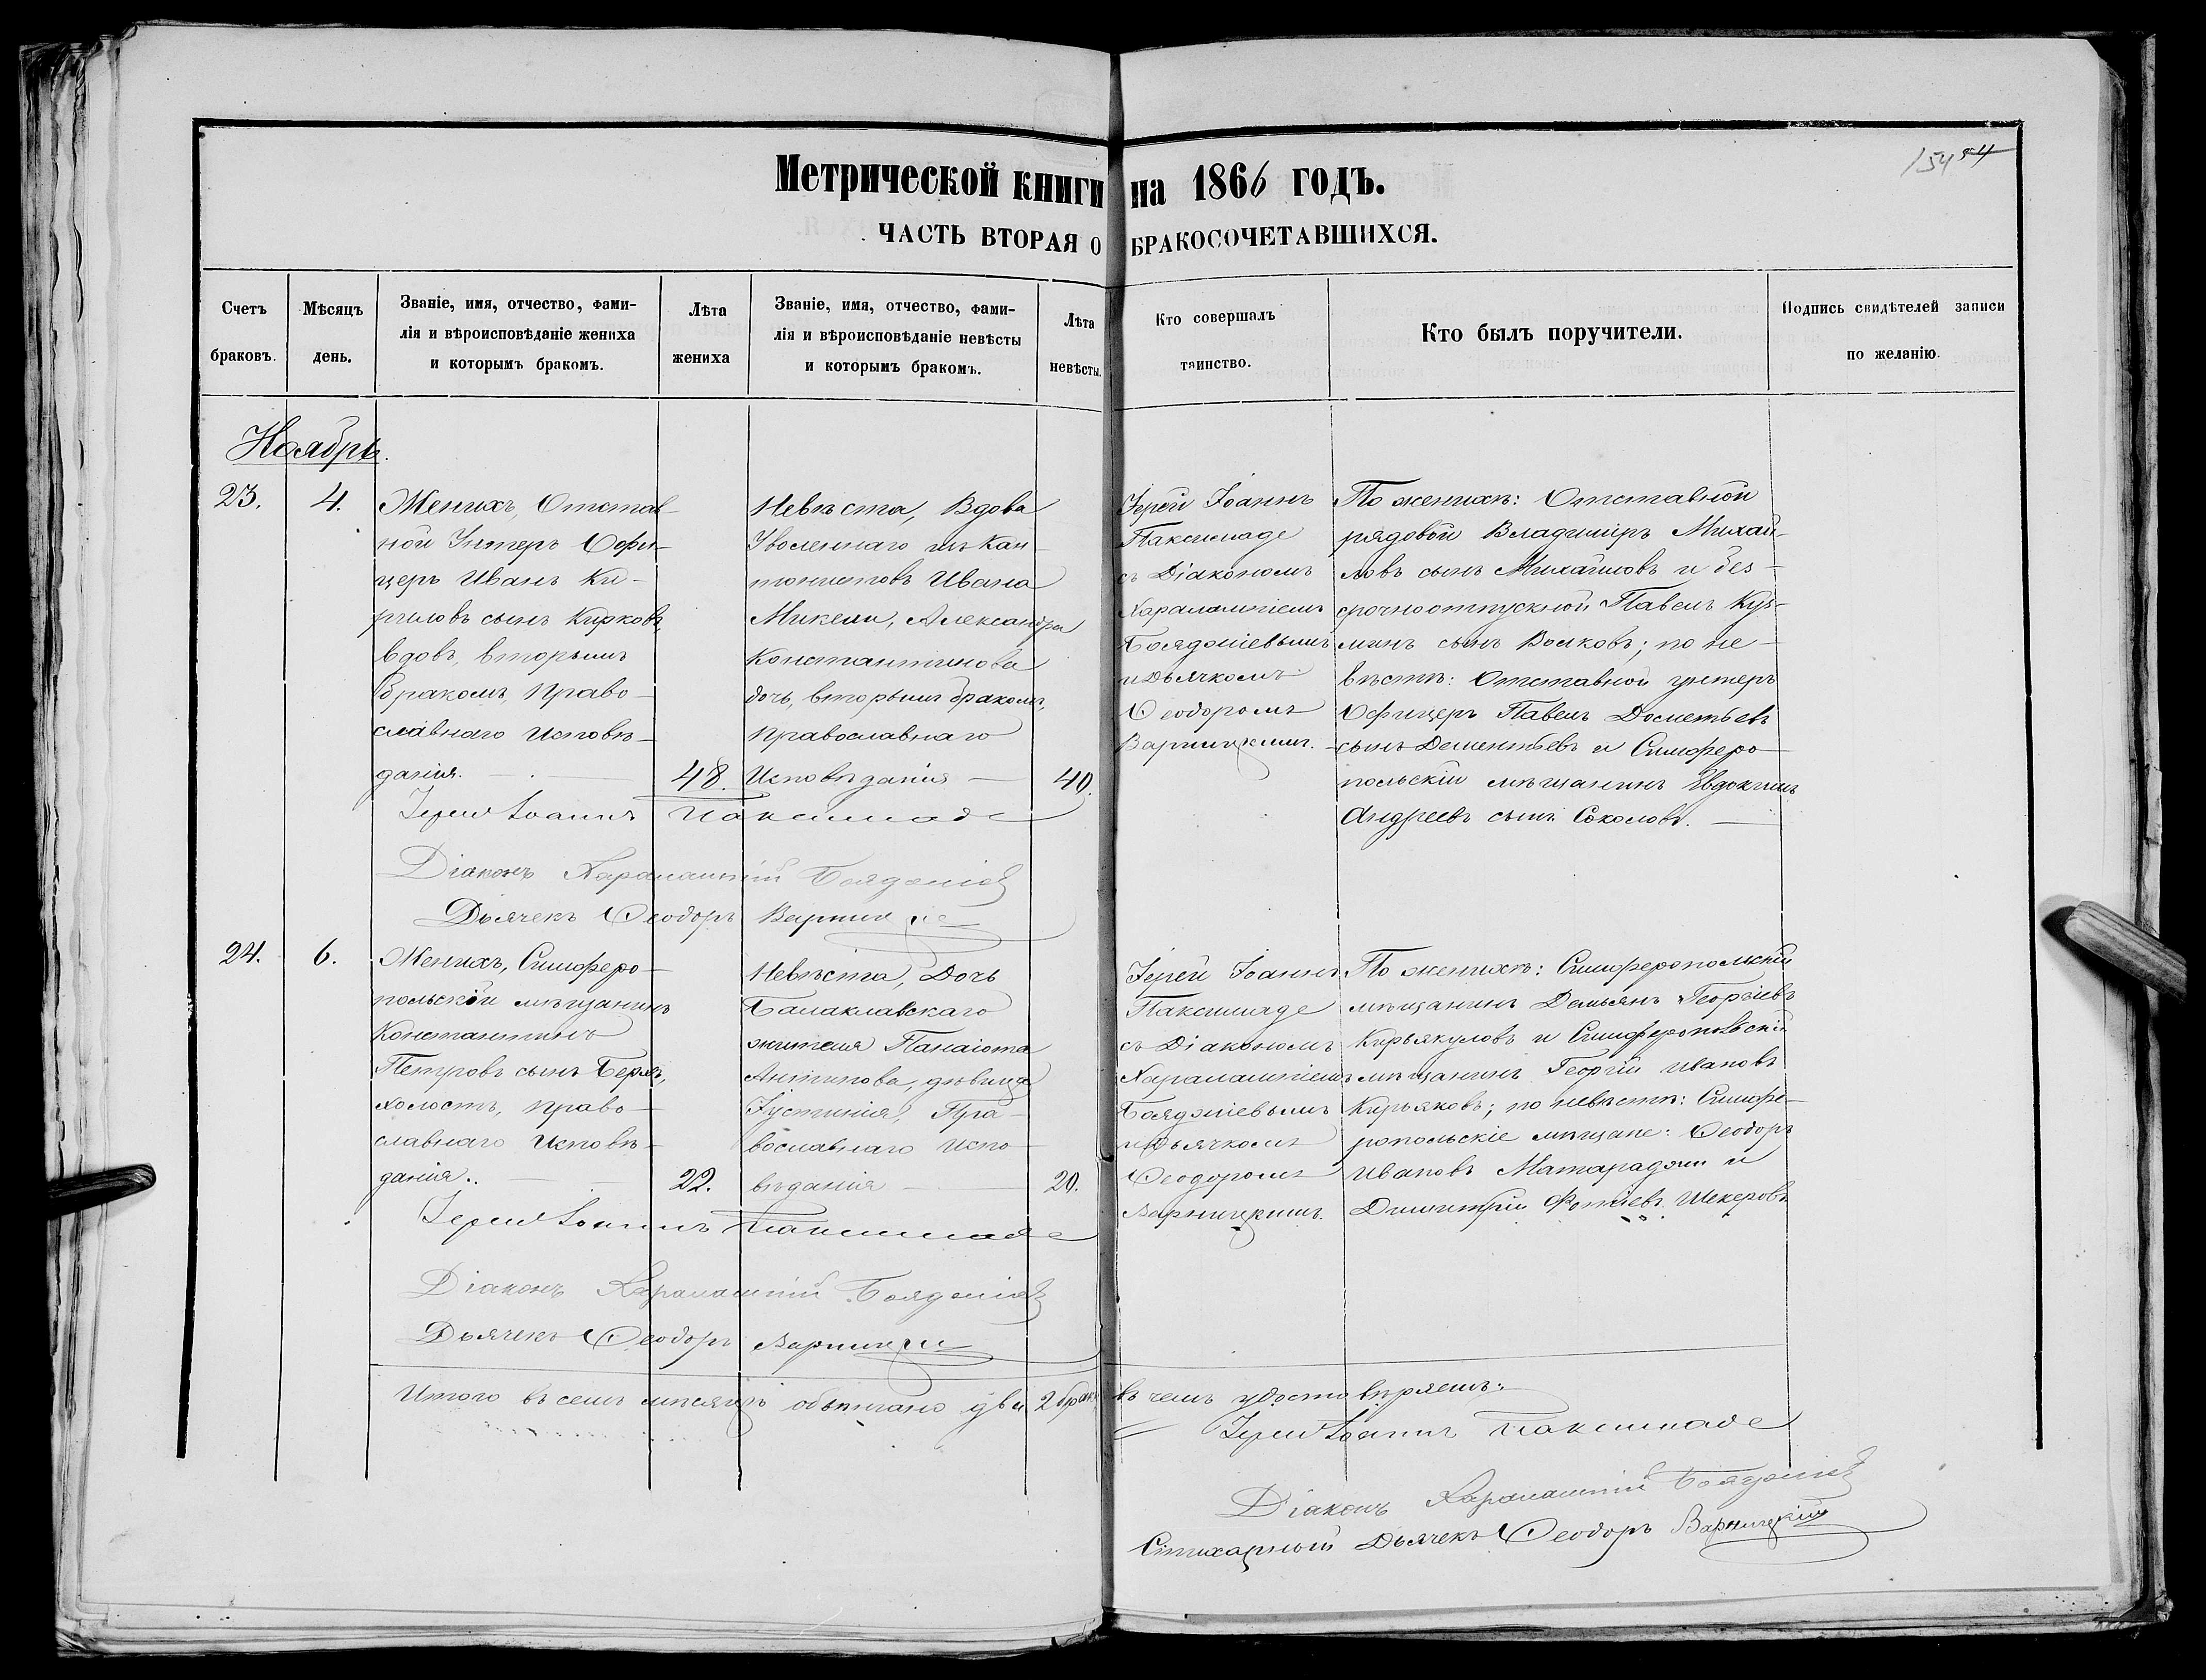 154 54
Метрической книги на 1866 годъ.
ЧАСТЬ ВТОРАЯ О БРАКОСОЧЕТАВШИХСЯ.
Счетъ браковъ.
Мѣсяцъ день.
Званіе, имя, отчество, фами-
лія и вѣроисповѣданіе жениха
и которымъ бракомъ.
Лѣта
жениха
Званіе, имя, отчество, фами-
лія и вѣроисповѣданіе невѣсты
и которымъ бракомъ.
Лѣта
невѣсты.
Кто совершалъ
таинство.
Кто былъ поручители.
Подпись свидѣтелей записи
по желанію.
Ноябрь.
23.
4.
Женихъ, Отстав-
ной Унтеръ Офи-
церъ Иванъ Ки-
риловъ сынъ Кирковъ,
вдовъ, вторымъ
бракомъ, право-
славнаго исповѣ-
данія.
48.
Невѣста, Вдова
Уволеннаго изъ Кан-
тонистовъ Ивана
Микели, Александра
Константинова
дочь, вторымъ бракомъ,
православнаго
Исповѣданія
40.
Іерей Іоаннъ
Паксимаде
съ Діакономъ
Харалампіемъ
Бояджіевымъ
и Дьячкомъ
Ѳеодоромъ
Варницкимъ.
По женихѣ: Отставной
рядовой Владимиръ Михай-
ловъ сынъ Михайловъ и без-
срочноотпускной Павелъ Куз-
минъ сынъ Волковъ; по не-
вѣстѣ: Отставной унтеръ
Офицеръ Павелъ
сынъ Дементьевъ и Симферо-
польскій мѣщанинъ Евдокимъ
Андреевъ сынъ Соколовъ.
Іерей Іоаннъ Паксимаде
Діаконъ Харалампій Бояджіев
Дьячекъ Ѳеодоръ Варницкій
24.
6.
Женихъ, Симферо-
польскій мѣщанинъ
Константинъ
Петровъ сынъ
холостъ, право-
славнаго Исповѣ-
данія..
22.
Невѣста, Дочь
Балаклавскаго
жителя Панаіота
Антипова, дѣвица
Іустинія, Пра-
вославнаго испо-
вѣданія
20.
Іерей Іоаннъ
Паксимаде
съ Діакономъ
Харалампіемъ
Бояджіевымъ
и Дьячкомъ
Ѳеодоромъ
Варницкимъ.
По женихѣ: Симферопольскій
мѣщанинъ Демьянъ Георгіевъ
Кирьякуловъ и Симферопольскій
мѣщанинъ Георгій Ивановъ
Кирьяковъ; по невѣстѣ: Симфе-
ропольскіе мѣщане: Ѳеодоръ
Ивановъ Матараджи и
Димитрій Фотіевъ Шекеровъ
Іерей Іоаннъ Паксимаде
Діаконъ Харалампій Бояджіев
Дьячекъ Ѳеодоръ Варницкій
Итого въ семъ мѣсяцѣ обвѣнчано два 2 брака въ чемъ удостовѣряемъ:
Іерей Іоаннъ Паксимаде
Діаконъ Харалампій Бояджіев
Стихарный Дьячекъ Ѳеодоръ Варницкій